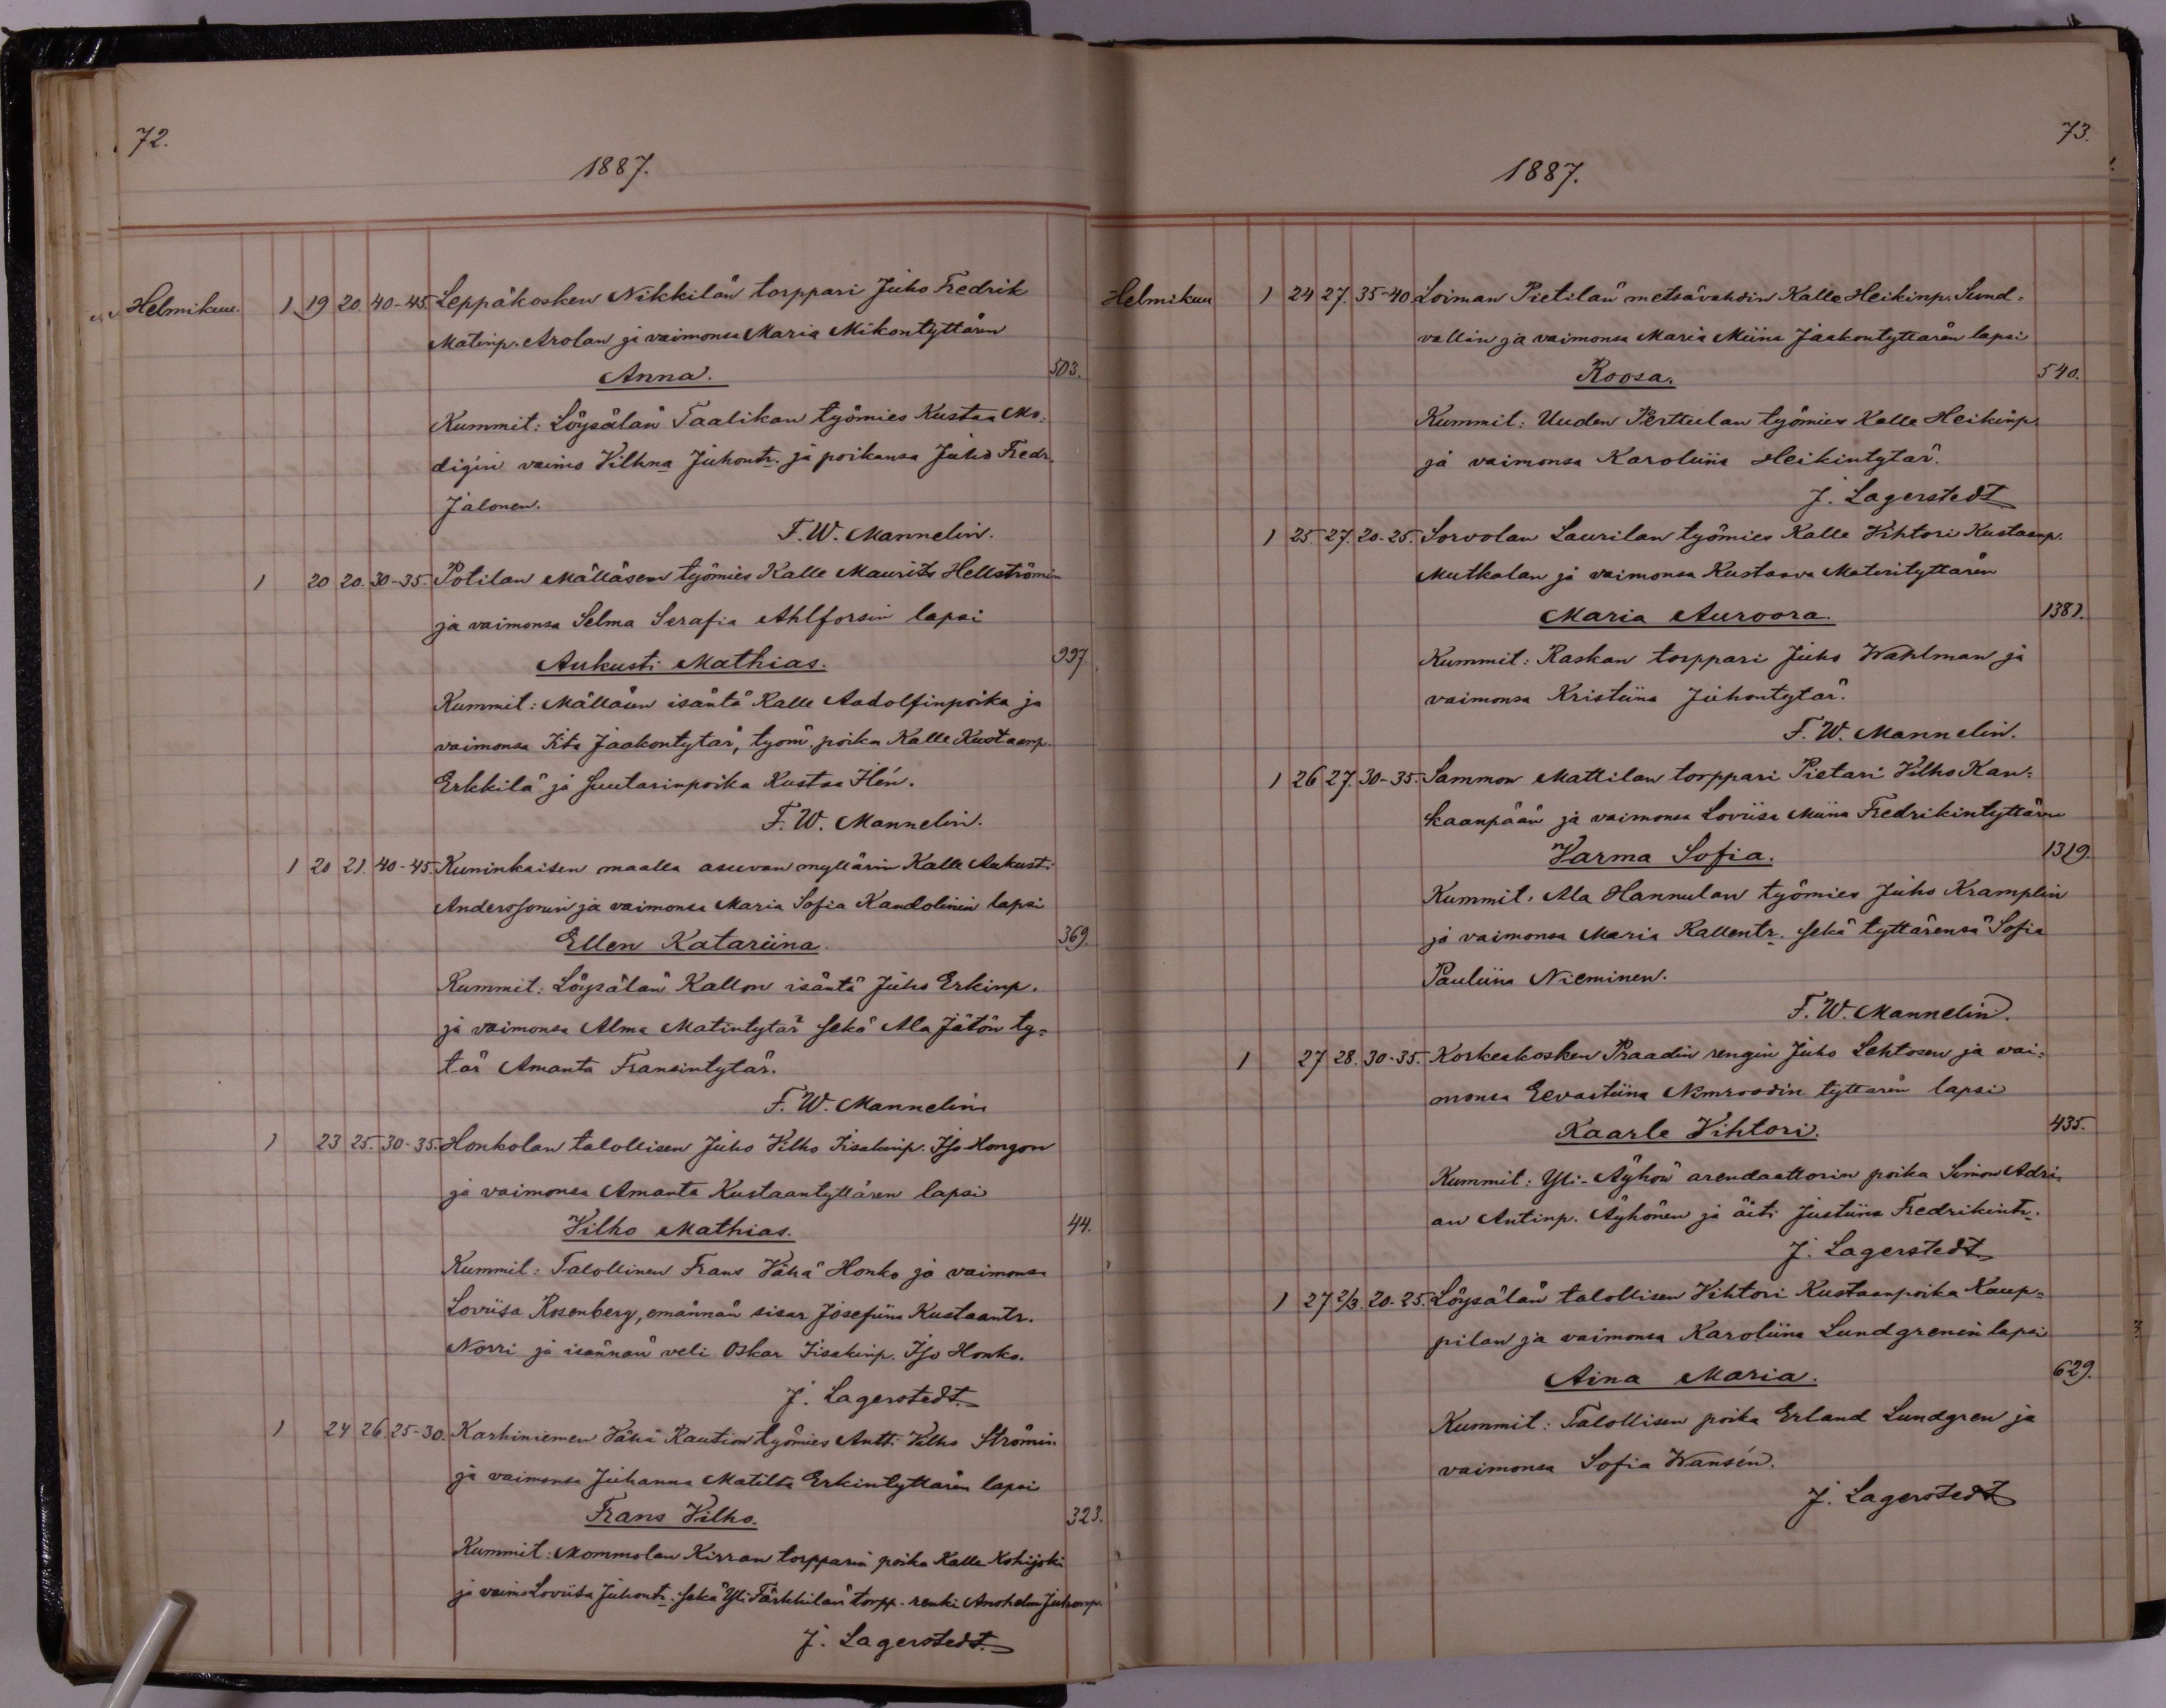 72.
1887.
Helmikuu. 1 19 20. 40-45. Leppäkosken Nikkilän torppari Juho Fredrik
Matinp. Arolan ja vaimonsa Maria Mikontyttären
Anna. 503.
Kummit: Löysälän Taalikan työmies Kustaa Mo-
digin vaimo Vilhna Juhontr. ja poikansa Juho Fredr.
Jalonen.
F. W. Mannelin.
1 20 20. 30-35. Potilan Mälläsen työmies Kalle Maurits Hellströmin
ja vaimonsa Selma Serafia Ahlforsin lapsi
Aukusti Mathias. 997.
Kummit: Mälläsen isäntä Kalle Aadolfinpoika ja
vaimonsa Iita Jaakontytär, työm. poika Kalle Kustaanp.
Erkkilä ja suutarinpoika Kustaa Hén.
F. W. Mannelin.
1 20 21. 40-45. Kuninkaisen maalla asuvan myllärin Kalle Aukusti
Anderssonin ja vaimonsa Maria Sofia Kandolinin lapsi
Ellen Katariina. 369.
Kummit: Löysälän Kallon isäntä Juho Erkinp.
ja vaimonsa Alma Matintytär sekä Ala Jätön ty-
tär Amanta Fransintytär.
F. W. Mannelin
1 23 25. 30-35. Honkolan talollisen Juho Vilho Iisakinp. Iso Hongon
ja vaimonsa Amanta Kustaantyttären lapsi
Vilho Mathias. 44.
Kummit: Talollinen Frans Vähä Honko ja vaimonsa
Loviisa Rosenberg, emännän sisar Josefiina Kustaantr.
Norri ja isännän veli Oskar Iisakinp. Iso Honko.
J. Lagerstedt.
1 24 26. 25-30. Karhiniemen Vähä Raution työmies Antti Vilho Strömin
ja vaimonsa Juhanna Matilta Erkintyttären lapsi
Frans Vilho. 323.
Kummit: Mommolan Kirran torpparin poika Kalle Kohijoki
ja vaimo Loviisa Juhontr. sekä Yli Tärkkilän torpp. renki Juhonp.
J. Lagerstedt.
73.
1887.
Helmikuu 1 24 27. 35-40 Loiman Pietilän metsävahdin Kalle Heikinp. Sund-
vallin ja vaimonsa Maria Miina Jaakontyttären lapsi
Roosa. 540.
Kummit: Uuden Perttulan työmies Kalle Heikinp.
ja vaimonsa Karoliina Heikintytär.
J. Lagerstedt
1 25. 27. 20-25. Sorvolan Laurilan työmies Kalle Vihtori Kustaanp.
Mutkalan ja vaimonsa Kustaava Matintyttären
Maria Auroora. 1381.
Kummit: Raskan torppari Juho Wahlman ja
vaimonsa Kristiina Juhontytär.
F. W. Mannelin.
1 26 27. 30-35. Sammon Mattilan torppari Pietari Vilho Kan-
kaanpään ja vaimonsa Loviisa Miina Fredrikintyttären
Varma Sofia. 1319.
Kummit: Ala Hannulan työmies Juho Kramplin
ja vaimonsa Maria Kallentr. sekä tyttärensä Sofia
Pauliina Nieminen.
F. W. Mannelin.
1 27 28. 30-35. Korkeakosken Praadin rengin Juho Lehtosen ja vai-
monsa Eevastiina Nimroodin tyttären lapsi
Kaarle Vihtori. 435.
Kummit: Yli-Äyhön arendaattorin poika Simon Adri-
an Antinp. Äyhönen ja äiti Justiina Fredrikintr.
J. Lagerstedt
1 27 2/3. 20-25. Löysälän talollisen Vihtori Kustaanpoika Kaup-
pilan ja vaimonsa Karoliina Lundgrenin lapsi
Aina Maria. 629.
Kummit: Talollisen poika Erland Lundgren ja
vaimonsa Sofia Wansén.
J. Lagerstedt